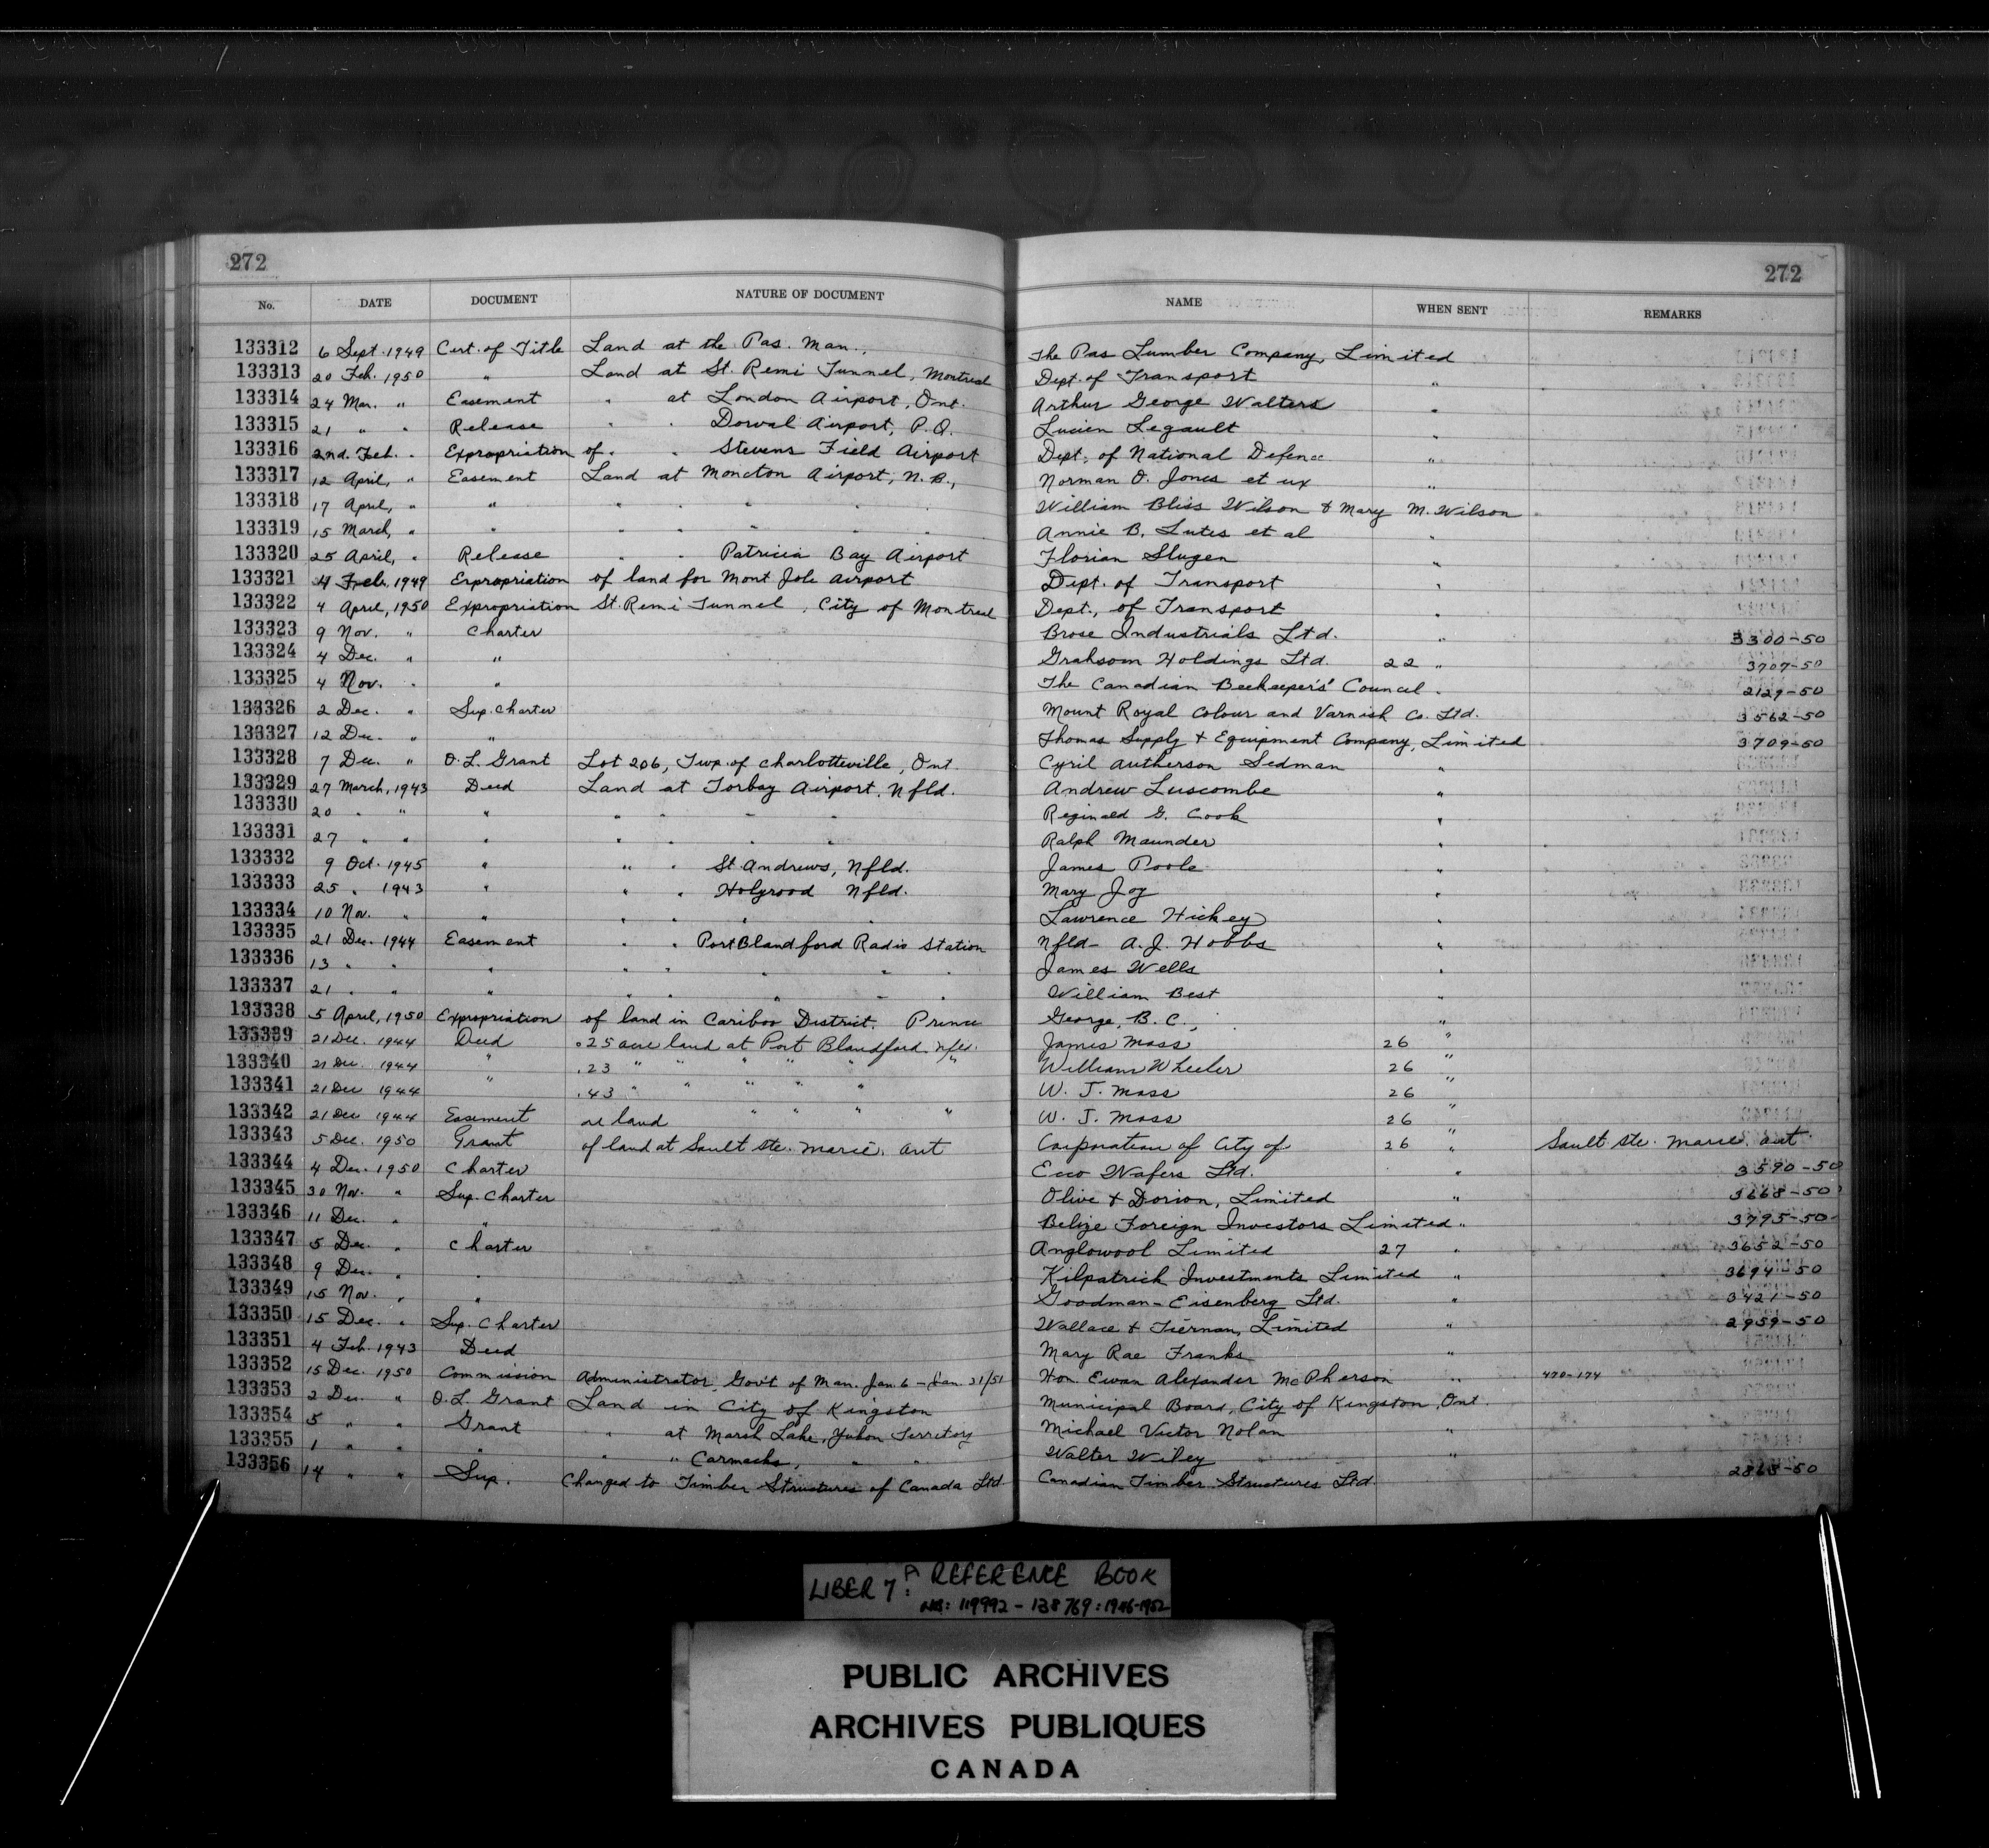 272 272
No. DATE DOCUMENT NATURE OF DOCUMENT NAME WHEN SENT REMARKS
133312 6 Sept. 1949 Cert. of Title Land at the Pas. Man., The Pas Lumber Company, Limited
133313 20 Feb. 1950 " Land at St. Remi Tunnel, Montreal Dept. of Transport "
133314 24 Mar. " Easement " at London Airport, Ont. Arthur George Walters "
133315 21 " " Release " " Dorval Airport, P.Q. Lucien Legault "
133316 2nd. Feb. " Expropriation of " " Stevens Field Airport Dept. of National Defence "
133317 12 April, " Easement Land at Moncton Airport, N.B., Norman O. Jones et ux "
133318 17 April, " " " " " " " William Bliss Wilson & Mary M. Wilson
133319 15 March, " " " " " " " Annie B. Lutes et al "
133320 25 April, " Release " " Patricia Bay Airport Florian Slugen "
133321 4 Feb. 1949 Expropriation of land for Mont Joli airport Dept. of Transport "
133322 4 April, 1950 Expropriation St. Remi Tunnel, City of Montreal Dept., of Transport "
133323 9 Nov. " Charter Brose Industrials Ltd. " 3300-50
133324 4 Dec. " " Grahsom Holdings Ltd. 22 " 3707-50
133325 4 Nov. " " The Canadian Beekeeper's' Council " 2129-50
133326 2 Dec. " Sup. Charter Mount Royal Colour and Varnish Co. Ltd. 3562-50
133327 12 Dec. " " Thomas Supply & Equipment Company, Limited 3709-50
133328 7 Dec. " O.L. Grant Lot 206, Twp. of Charlotteville, Ont. Cyril Autherson Sedman "
133329 27 March, 1943 Deed Land at Torbay Airport, Nfld. Andrew Luscombe "
133330 20 " " " " " " " Reginald G. Cook "
133331 27 " " " " " " " Ralph Maunder "
133332 9 Oct. 1945 " " " St Andrews, Nfld. James Poole "
133333 25 " 1943 " " " Holyrood Nfld. Mary Joy "
133334 10 Nov. " " " " " " Lawrence Hickey "
133335 21 Dec. 1944 Easement " " Port Blandford Radio Station Nfld- A.J. Hobbs "
133336 13 " " " " " " " " James Wells "
133337 21 " " " " " " " " William Best "
133338 5 April, 1950 Expropriation of land in Cariboo District. Prince George, B.C., "
133339 21 Dec. 1944 Deed .25 acre land at Port Blandford. Nfld. James Moss 26 "
133340 21 Dec. 1944 " .23 " " " " " " William Wheeler 26 "
133341 21 Dec 1944 " .43 " " " " " W. J. Moss 26 "
133342 21 Dec 1944 Easement re land " " " " W. J. Moss 26 "
133343 5 Dec. 1950 Grant of land at Sault Ste. Marie. Ont Corporation of City of 26 " Sault Ste. Marie. Ont.
133344 4 Dec. 1950 Charter Ecco Wafers Ltd. " 3590-50
133345 30 Nov. " Sup. Charter Olive & Dorion, Limited " 3668-50
133346 11 Dec. " " Belize Foreign Investors Limited " 3795-50
133347 5 Dec. " Charter Anglowool Limited 27 " 3652-50
133348 9 Dec. " " Kilpatrick Investments Limited " 3694-50
133349 15 Nov. " " Goodman-Eisenberg Ltd. " 3421-50
133350 15 Dec. " Sup. Charter Wallace & Tiernan, Limited " 2959-50
133351 4 Feb. 1943 Deed Mary Rae Franks "
133352 15 Dec. 1950 Commission Administrator, Gov't of Man. Jan. 6 - Jan. 31/51 Hon. Ewan Alexander McPherson " 470-174
133353 2 Dec. " O.L. Grant Land in City of Kingston Municipal Board, City of Kingston, Ont.
133354 5 " " Grant " at Marsh Lake, Yukon Territory Michael Victor Nolan "
133355 1 " " " " " Carmacks, " " Walter Wiley "
133356 14 " " Sup. Changed to Timber Structures of Canada Ltd. Canadian Timber Structures Ltd. 2868-50
LIBER 7: A REFERENCE BOOK
NOS: 119992 - 138769: 1946-1952
PUBLIC ARCHIVES
ARCHIVES PUBLIQUES
CANADA